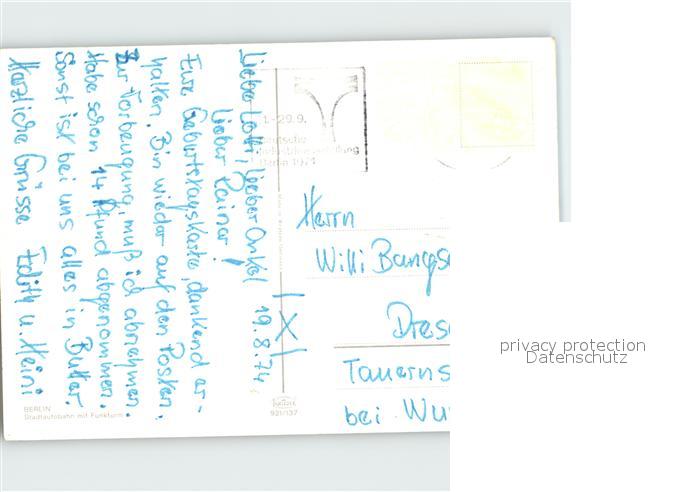 19.8.74.
Lieber Lothi, lieber Onkel
Lieber Rainer!
Eure Geburtstagskarte, dankend er-
halten. Bin wieder auf den Posten.
Zur Vorbeugung, muß ich abnehmen.
Habe schon 14 Pfund abgenommen.
Sonst ist bei uns alles in Butter.
Herzliche Grüsse Edith u. Heini
Herrn
Willi Bangs
Dres
Tauerns
bei Wu
X
-29.9.
Deutsche
Industrieausstellung
Berlin 1974
BERLIN
Stadtautobahn mit Funkturm
921/137
privacy protection
Datenschutz